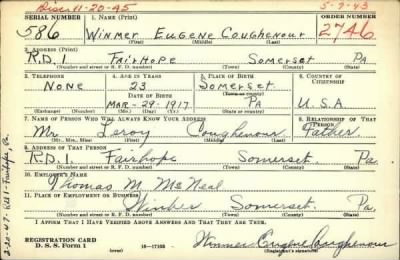 Disc 11-20-45
5-7-43
SERIAL NUMBER 1. NAME (Print) ORDER NUMBER
586 Winmer Eugene Coughenour 2746
(First) (Middle) (Last)
2. ADDRESS (Print)
R.D. 1 Fairhope Somerset Pa
(Number and street or R. F. D. number) (Town) (County) (State)
3. TELEPHONE 4. AGE IN YEARS 5. PLACE OF BIRTH 6. COUNTRY OF CITIZENSHIP
None 23 Somerset
DATE OF BIRTH (Town or county)
Mar-29-1917 Pa U.S.A
(Exchange) (Number) (Mo.) (Day) (Yr.) (State or country)
7. NAME OF PERSON WHO WILL ALWAYS KNOW YOUR ADDRESS 8. RELATIONSHIP OF THAT PERSON
Mr. Leroy Coughenour Father
(Mr., Mrs., Miss) (First) (Middle) (Last)
9. ADDRESS OF THAT PERSON
R.D. 1 Fairhope Somerset Pa.
(Number and street or R. F. D. number) (Town) (County) (State)
10. EMPLOYER'S NAME
Thomas M. McNeal
11. PLACE OF EMPLOYMENT OR BUSINESS
Somerset Pa.
(Number and street or R. F. D. number) (Town) (County) (State)
I AFFIRM THAT I HAVE VERIFIED ABOVE ANSWERS AND THAT THEY ARE TRUE.
REGISTRATION CARD
D. S. S. Form 1 16-17105 Winmer Eugene Coughenour
(Registrant's signature)
2-20-47- Rd 1- Fairhope, Pa.